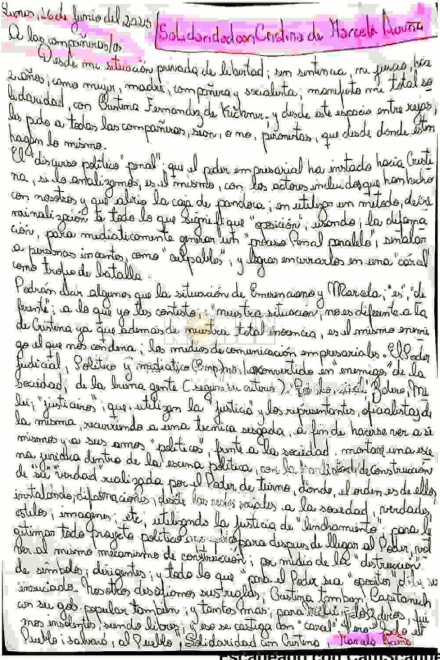 Lunes, 16 de Junio del 2025 Solidaridad con Cristina de Marcela Acuña
A los compañeros/as
Desde mi situación privada de libertad, sin sentencia, ni juicio, hace
2 años, como mujer, madre, compañera y socialista; manifiesto mi total so
lidaridad, con Cristina Fernandez de Kichner. y desde este espacio entre rejas
les pido a todas las compañeras, sean, o no, peronistas, que desde donde esten
hagan lo mismo.
El discurso político "penal", que el poder empresarial ha instado hacia Cristi
na, si lo analizamos, es el mismo, con los actores incluidos que han hecho
con nosotros y que abrio la caja de pandora; en utilizar un metodo, de cri
minalización, de todo lo que signifique "oposición", usando, la difama
ción, para mediaticamente generar un "proceso Penal paralelo", señalar
a personas inocentes, como "culpables", y lograr encerrarlos en una "cárcel"
como trofeo de batalla.
Podrán decir algunos que la situación de Emerenciano y Marcela, "es", "di
ferente", a lo que yo les contesto, nuestra situación, no es diferente a la
de Cristina ya que además de nuestra total inocencia, es el mismo enemi
go el que nos condena: los medios de comunicación empresariales. El Poder
Judicial, Político y mediatico Corporativo, convertido en "enemigo" de la
Sociedad, de la buena gente (según su criterio).
lei, "justicieros", que, utilizan la justicia y los representantes, oficialistas de
la misma, recurriendo a una técnica sesgada, a fin de hacerse ver a si
mismos y a sus amos "políticos", frente a la sociedad. montar una esce
na jurídica dentro de la escena política, con la finalidad de construcción
de "su" verdad realizada por el Poder de turno, donde, el orden es de ellos
instalando, difamaciones, desde las redes sociales a la sociedad, verdades,
estilos, imagenes; etc, utilizando la justicia de "linchamiento" para le
gitimar todo proyecto político para despues de llegar al Poder, vol
ver al mismo mecanismo de construcción; por medio de la "destrucción"
de simbolos, dirigentes, y todo lo que para el Poder sea "opositor",
enseñado. Nosotros desafiamos sus reglas, Cristina tambien, Capitanich
con su gob. popular tambien, y tantos mas, para
mos insolentes, siendo libres, y eso se castiga con "carcel"
Pueblo, salvará, al Pueblo, Solidaridad con Cristina, Marcela Acuña
Escaneado con CamScanner